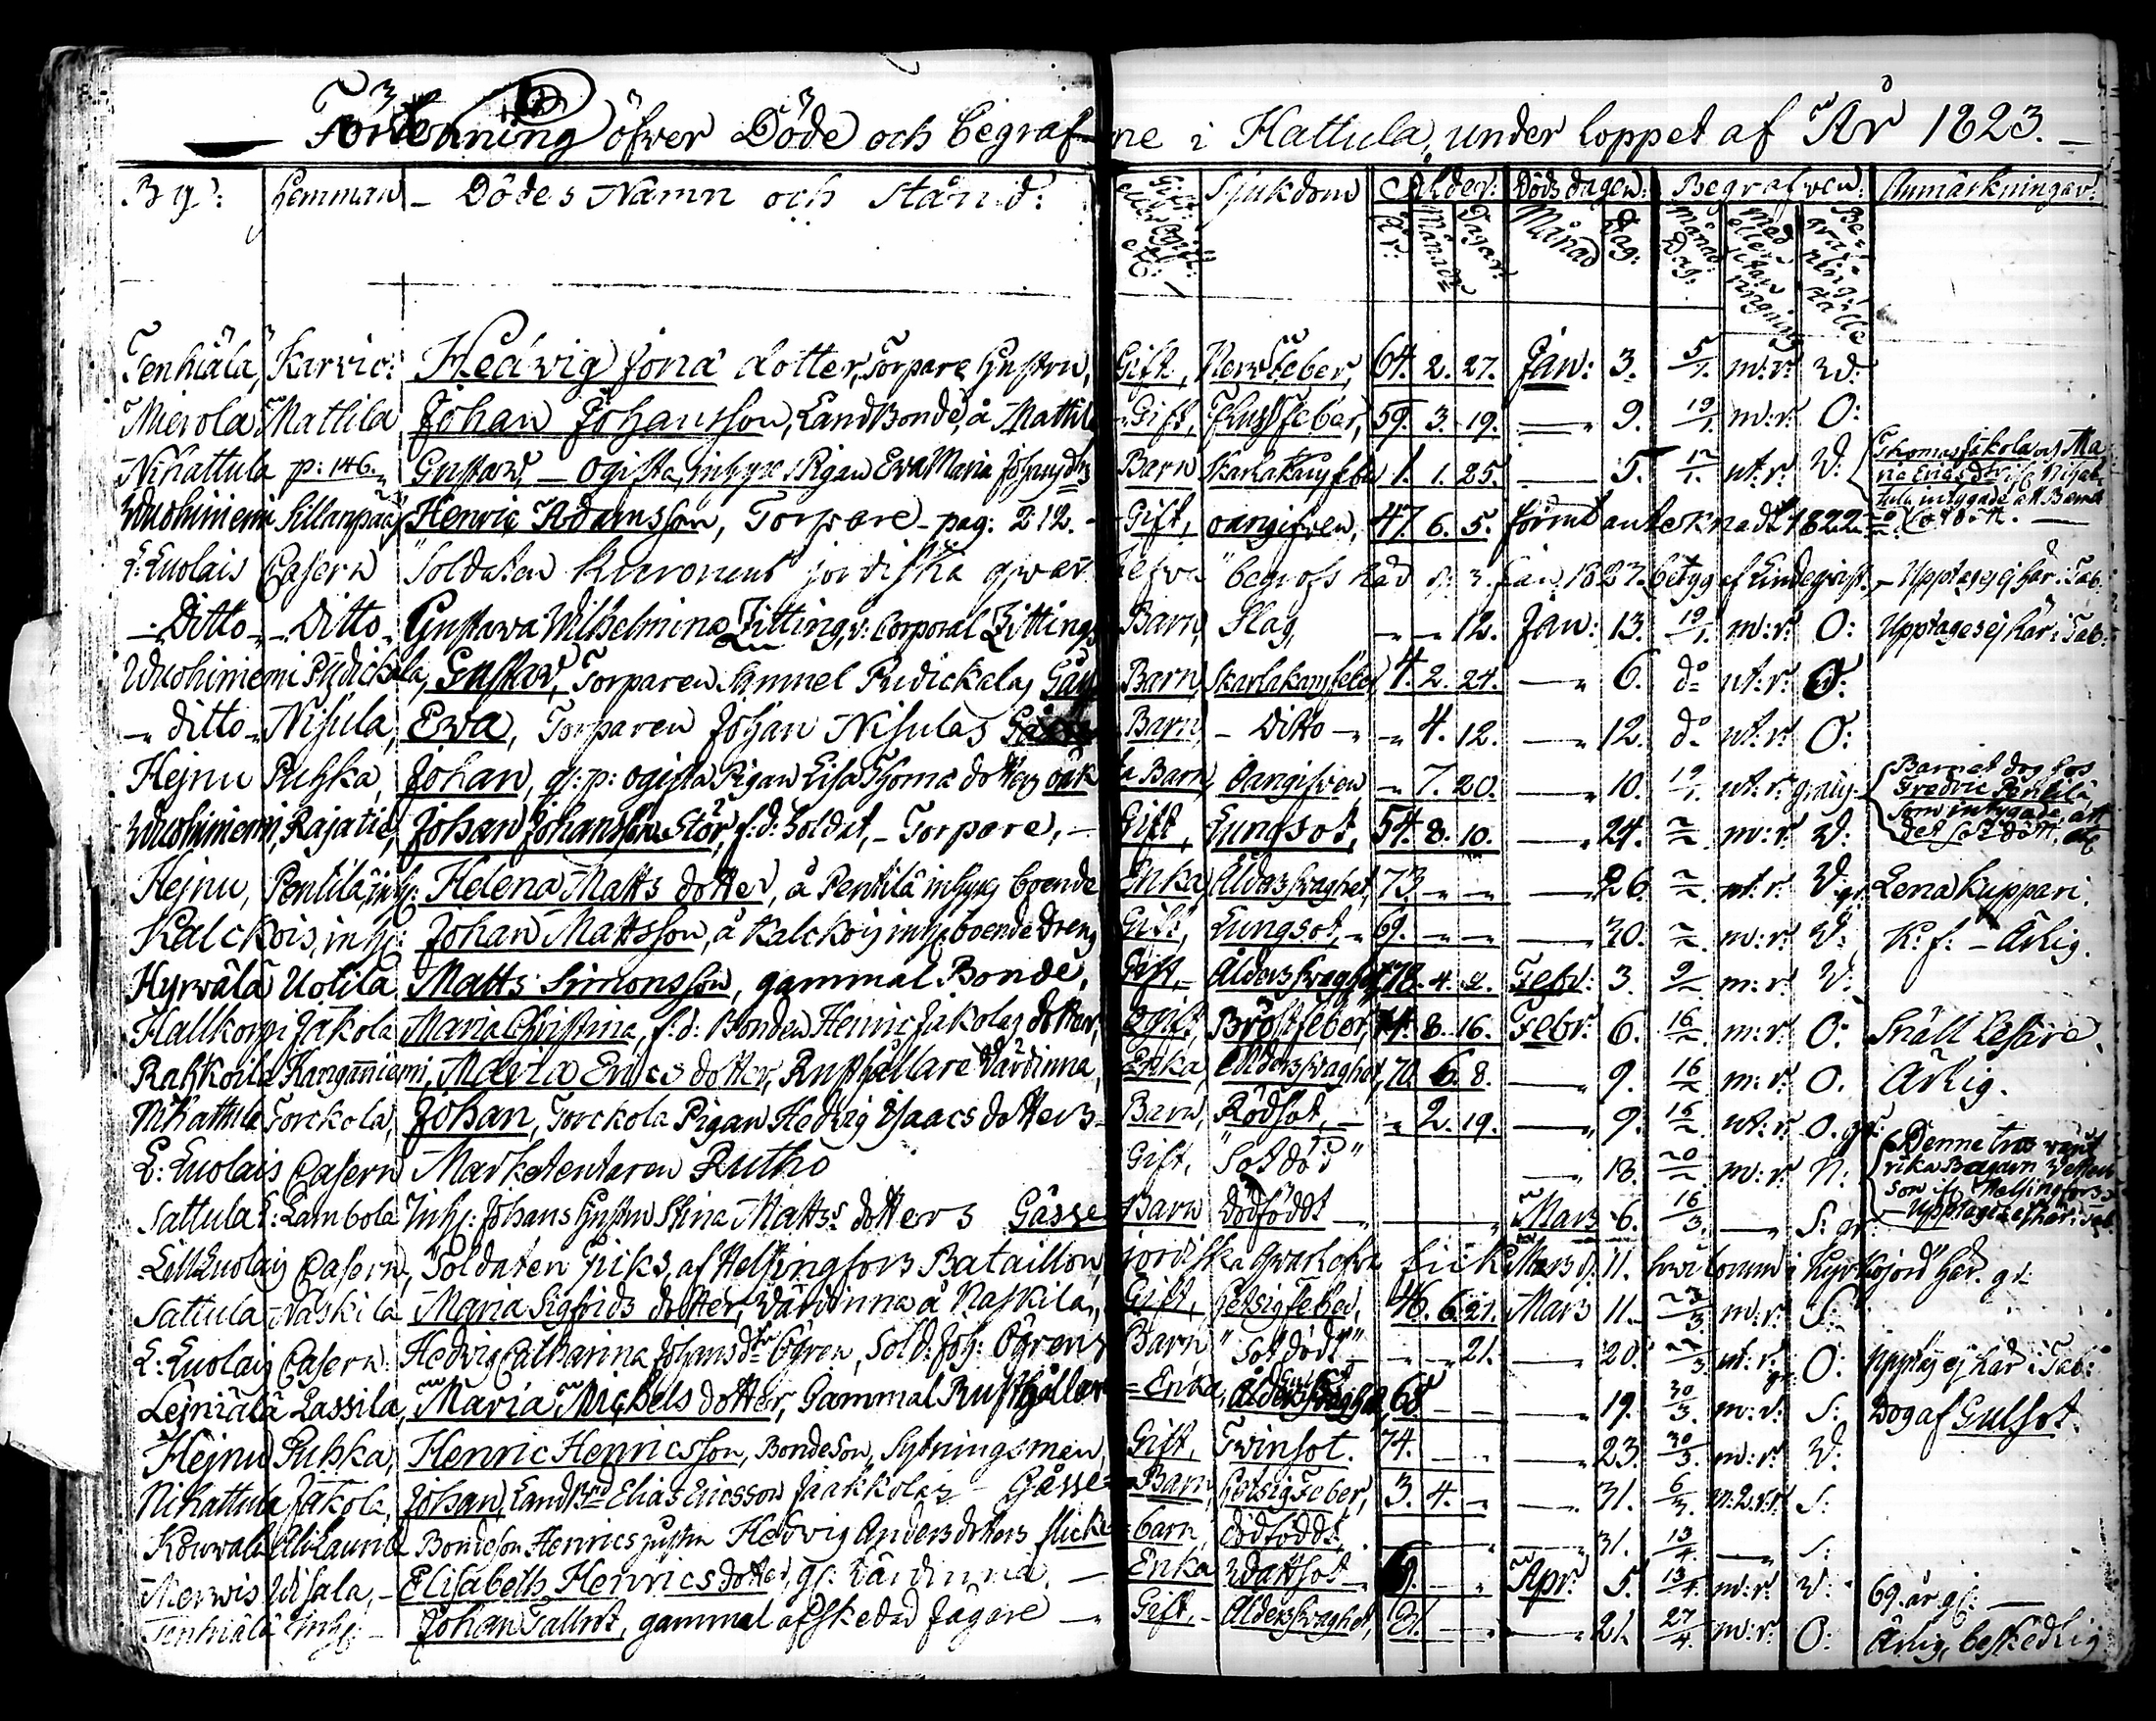 Förtekning öfver Döde och begrafne i Hattula, under loppet af År 1823.
By: Hemman Dödes Namn och Stånd: Sjukdom Ålder: Dödsdagen: Begrafven: Anmärkningar:
År: Månad Dagar Månad Dag: Månad Dag: Med eller utan ringning Begrafnings Ställe
Tenhiälä, Karvic: Hedvig Jona dotter, Torpare Hustru, Gift, Nervfeber, 64. 2. 27. Jan: 3. 5/1. m:r: W:
Mierola Mattila Johan Johansson, LandBonde, å Mattila Gift, Flussfeber, 59. 3. 19. 9. 19/1. m:r: O:
Nihattula p: 146. Gustaw, ogifta, inhyses Pigan Eva Maria Johansdrs Barn Skarlakansfeber 1. 1. 25. 5. 12/1. ut:r: W: Thomas Jakola och Maria Ericsdr ifr. Nihattula intygade att Barnet sotdödt.
Wuohiniemi Sillanpää, Henric Adamsson, Torpare pag: 212. Gift, oangifven, 47. 6. 5. förut anteknadt 1822
L: Luolais Casern Soldaten jordiska qvarlefva begrofs här d: 3. Jan. 1823. betyg af Upptages ej här i Tab.
Ditto Ditto Gustava Wilhelmina Zitting, v: Corporal Zittings Barn, Slag, 12. Jan: 13. 19/1. m:r: O: Upptages ej här i Tab:
Wuohiniemi Pudickala, Gustav, Torparen Samuel Pudickalas Barn, Skarlakansfeber 4. 2. 24. 6. do ut:r: O:
ditto Nisula, Eva, Torparen Johan Nisulas Barn, Ditto 4. 12. 12. do ut:r: O:
Hejnu Puhka, Johan, ogifta Pigan Lisa Thomæ dotters oäkta Barn, Oangifven 7. 20. 10. 19/1. ut:r: Barnet dog hos Fredric Pentilä, som intygade, att det sotdödt.
Wuohiniemi, Rajatie, Johan Johansson Stör, f:d: Soldat, Torpare, Gift, Lungsot, 54. 8. 10. 24. 2/2. m:r: W:
Hejnu, Pentilä, inhy: Helena Matts dotter, å Pentilä inhyses boende Enka, Ålderssvaghet, 73. 26. 2/2. ut:r: W: gr. Lena Kuppari.
Kalckois, inhy: Johan Mattsson, å Kalckois inhy: boende Dreng Gift, Lungsot, 69. 30. 2/2. m:r: W: K: f: Ärlig.
Hyrvälä Uotila, Matts Simonsson, gammal Bonde, Gift, Ålderssvaghet, 78. 4. 2. Febr: 3. 9/2. m:r: W:
Hallkorpi Jakola Maria Christina, f:d: Bonden Henric Jakolas dotter, Ogift, Bröstfeber, 14. 8. 16. Febr: 6. 16/2. m:r: O: Snäll Läsare.
Rahkoila Kanganniemi, Maria Erics dotter, Rusthållare Värdinna, Enka, Ålderssvaghet, 70. 6. 8. 9. 16/2. m:r: O. Ärlig.
Nihattula Torckola, Johan, Torckola Pigan Hedvig Isaacs dotters Barn, Rödsot, 2. 19. 9. 16/2. ut:r: O. gr:
L: Luolais Casern Marketentaren Rutho Gift, "Sotdöd" 18. 20/2. m:r: N: Denne ifr Helsingfors. Upptages ej här i Tab.
Sattula L: Lambola Inhy: Johans Hustru Stina Matts: dotters Gåsse Barn Dödföddt Mars 6. 16/3. S: gr.
Lill Luolais Casern, Soldaten Gicks, af Helsingfors Bataillon, jordiska qvarlefva fick Mars d: 11. hvilorum i Kyrkojord här. gr:
Sattula Naskila Maria Sigfrids dotter, Värdinna å Naskila, Gift, Hetsigfeber, 46. 6. 21. Mars 11. 23/3. m:r: S:
L: Luolais Casern: Hedvig Catharina Johans dr Ögren, Sold: Joh: Ögrens Barn "Sotdödt" 21. 20. 22/3. ut:r: O: Upptas ej här i Tab:
Lejniälä Lassila, Maria Michels dotter, Gammal Rusthållare Enka, Gulsot Ålderssvaghet, 68. 19. 30/3. m:r: S: Dog af Gulsot.
Hejnu Puhka, Henric Henricsson, BondeSon, Sytningsman, Gift, Tvinsot. 74. 23. 30/3. m:r: W:
Nihattula Jakola, Johan, LandBnd Elias Ericsson Jaakkolas Gåsse Barn, Hetsigfeber, 3. 4. 31. 6/3. m.2.r:r: S:
Kouvala Alilaurila Bondeson Henrics hustru Hedvig Anders dotters flicke barn, Dödföddt, 31. 13/4. S:
Merwis Uisala, Elisabeth Henrics dotter, gl: Värdinna. Enka Wattsot 69. Apr: 5. 13/4. m:r: W: 69. år gl:
Tenhiälä Inhy: Johan Tallrot, gammal afskedad Jägare Gift, Ålderssvaghet, 81. 21. 27/4. m:r: O: Ärlig, beskedlig